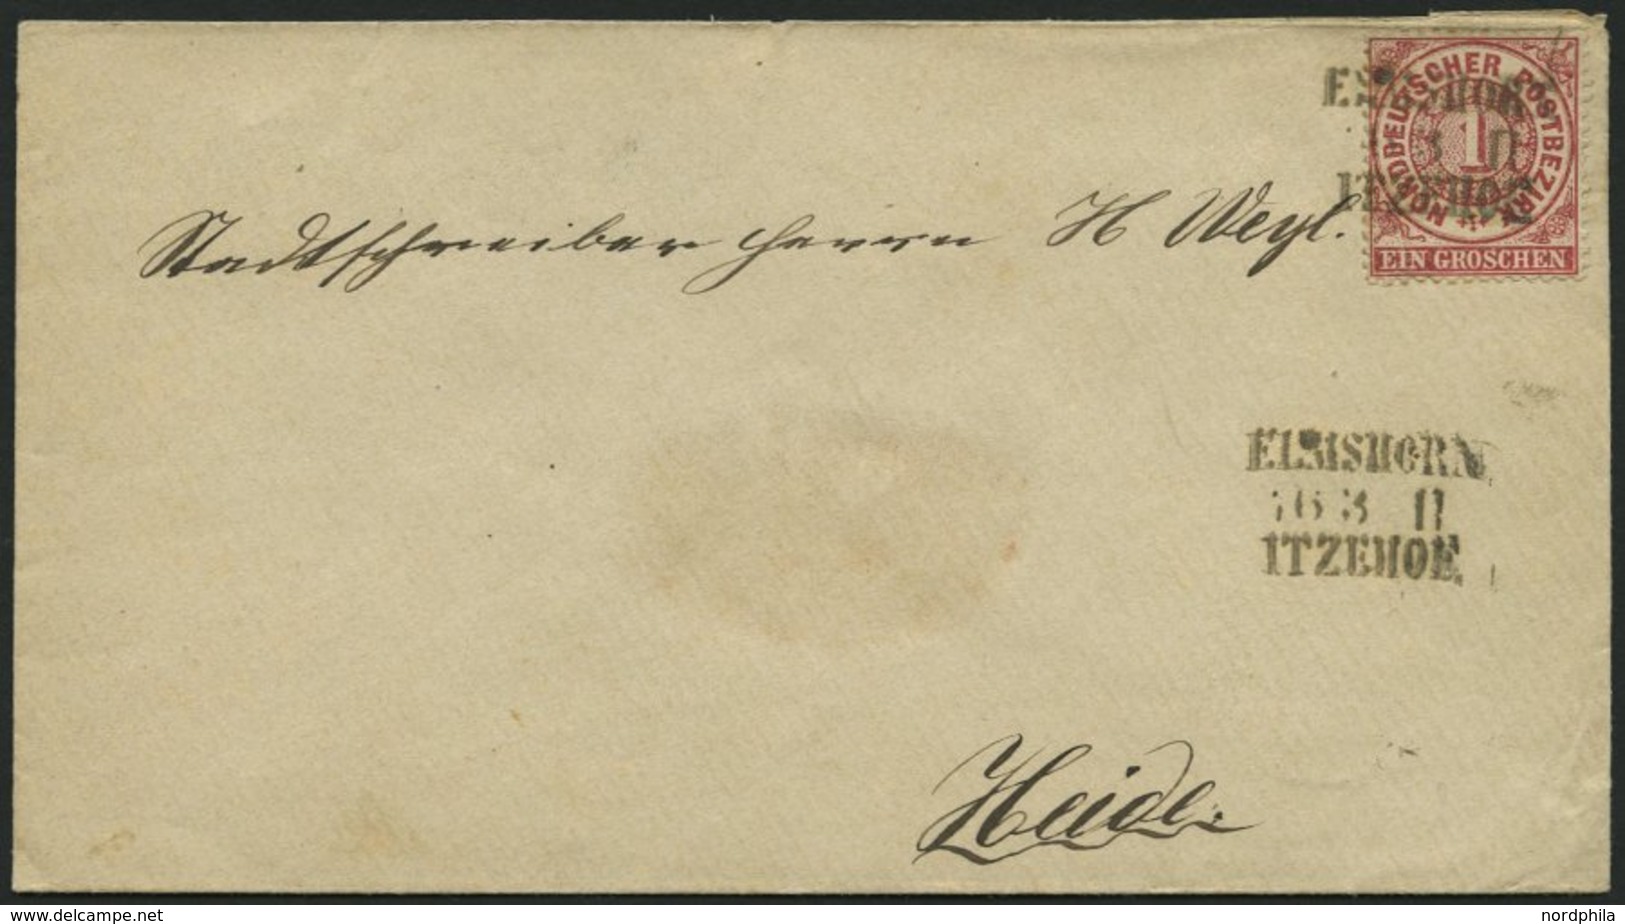 NORDDEUTSCHER POSTBEZIRK
1
EIN GROSCHEN
Stadtschreiber Herrn H Weyl.
ELMSHORN
3 II
ITZEHOE
Heide.
www.delcampe.net
nordphila